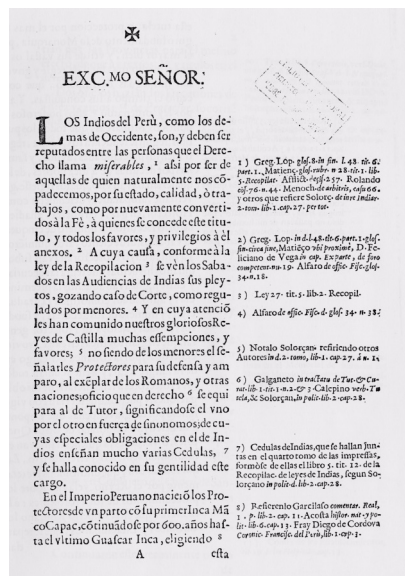 EXC.MO SEÑOR.
LOS Indios del Perù, como los de-
mas de Occidente, son, y deben ser
reputados entre las personas que el Dere-
cho llama miserables, 1 assi por ser de
aquellas de quien naturalmente nos cõ-
padecemos, por su estado, calidad, ò tra-
bajos, como por nuevamente converti-
dos à la Fè, à quienes se concede este titu-
lo, y todos los favores, y privilegios à èl
anexos. 2 A cuya causa, conforme à la
ley de la Recopilacion 3 se vèn los Saba-
dos en las Audiencias de Indias sus pley-
tos, gozando caso de Corte, como regu-
lados por menores. 4 Y en cuya atenciõ
les han comunido nuestros gloriosos Re-
yes de Castilla muchas essempciones, y
favores; 5 no siendo de los menores el se-
ñalarles Protectores para su defensa y am
paro, al exẽplar de los Romanos, y otras
naciones; oficio que en derecho 6 se equi
para al de Tutor, significandose el vno
por el otro en fuerça de sinonomos; de cu-
yas especiales obligaciones en el de In-
dios enseñan mucho varias Cedulas, 7
y se halla conocido en su gentilidad este
cargo.
En el Imperio Peruano naciero los Pro-
tectores de vn parto cõ su primer Inca Mã
co Capac, cõtinuãdose por 600. años has-
ta el vltimo Guascar Inca, eligiendo 8
A esta
1 ) Greg. Lop. glos. 8. in fin. l. 48. tit. 6.
part. 1. Matienç. glos. rubr. n 28. tit. 1. lib.
5. Recopilat. Afflict. decis. 257. Rolando
cõs. 76. n. 44. Menoch. de arbitris, casu 66.
y otros que refiere Solorç. de iure Indiar.
2. tom. lib. 1. cap. 27. per tot.
2) Greg. Lop. in d. l. 48. tit. 6. part. 1. glos.
fin. circa fine, Matiẽço vbi proximè, D. Fe-
liciano de Vega in cap. Exparte, de foro
competent. nu. 19. Alfaro de offic. Fisc. glos.
34. n. 18.
3 ) Ley 27. tit. 5. lib. 2. Recopil.
4) Alfaro de offic. Fisc. d. glos. 34. n. 38.
5) Notalo Solorçan. refiriendo otros
Autores in d. 2. tomo, lib. 1. cap. 27. à n. 1.
6) Galganeto in tractatu de Tut. & Cu-
rat. lib. 1. tit. 1. n. 2. & 3 Calepino verb. Tu
tela, & Solorçan, in polit. lib. 2. cap. 28.
7) Cedulas de Indias, que se hallan Jun-
tas en el quarto tomo de las impressas,
formòse de ellas el libro 5. tit. 12. de la
Recopilac. de leyes de Indias, segun So-
lorçano in polit. d. lib. 2. cap. 28.
8 ) Refierenlo Garcilaso comentar. Real,
1. p. lib. 2. cap. 11. Acosta histor. nat. y po-
lit. lib. 6. cap. 13. Fray Diego de Cordova
Coronic. Francisc. del Perù, lib. 1. cap. 3.